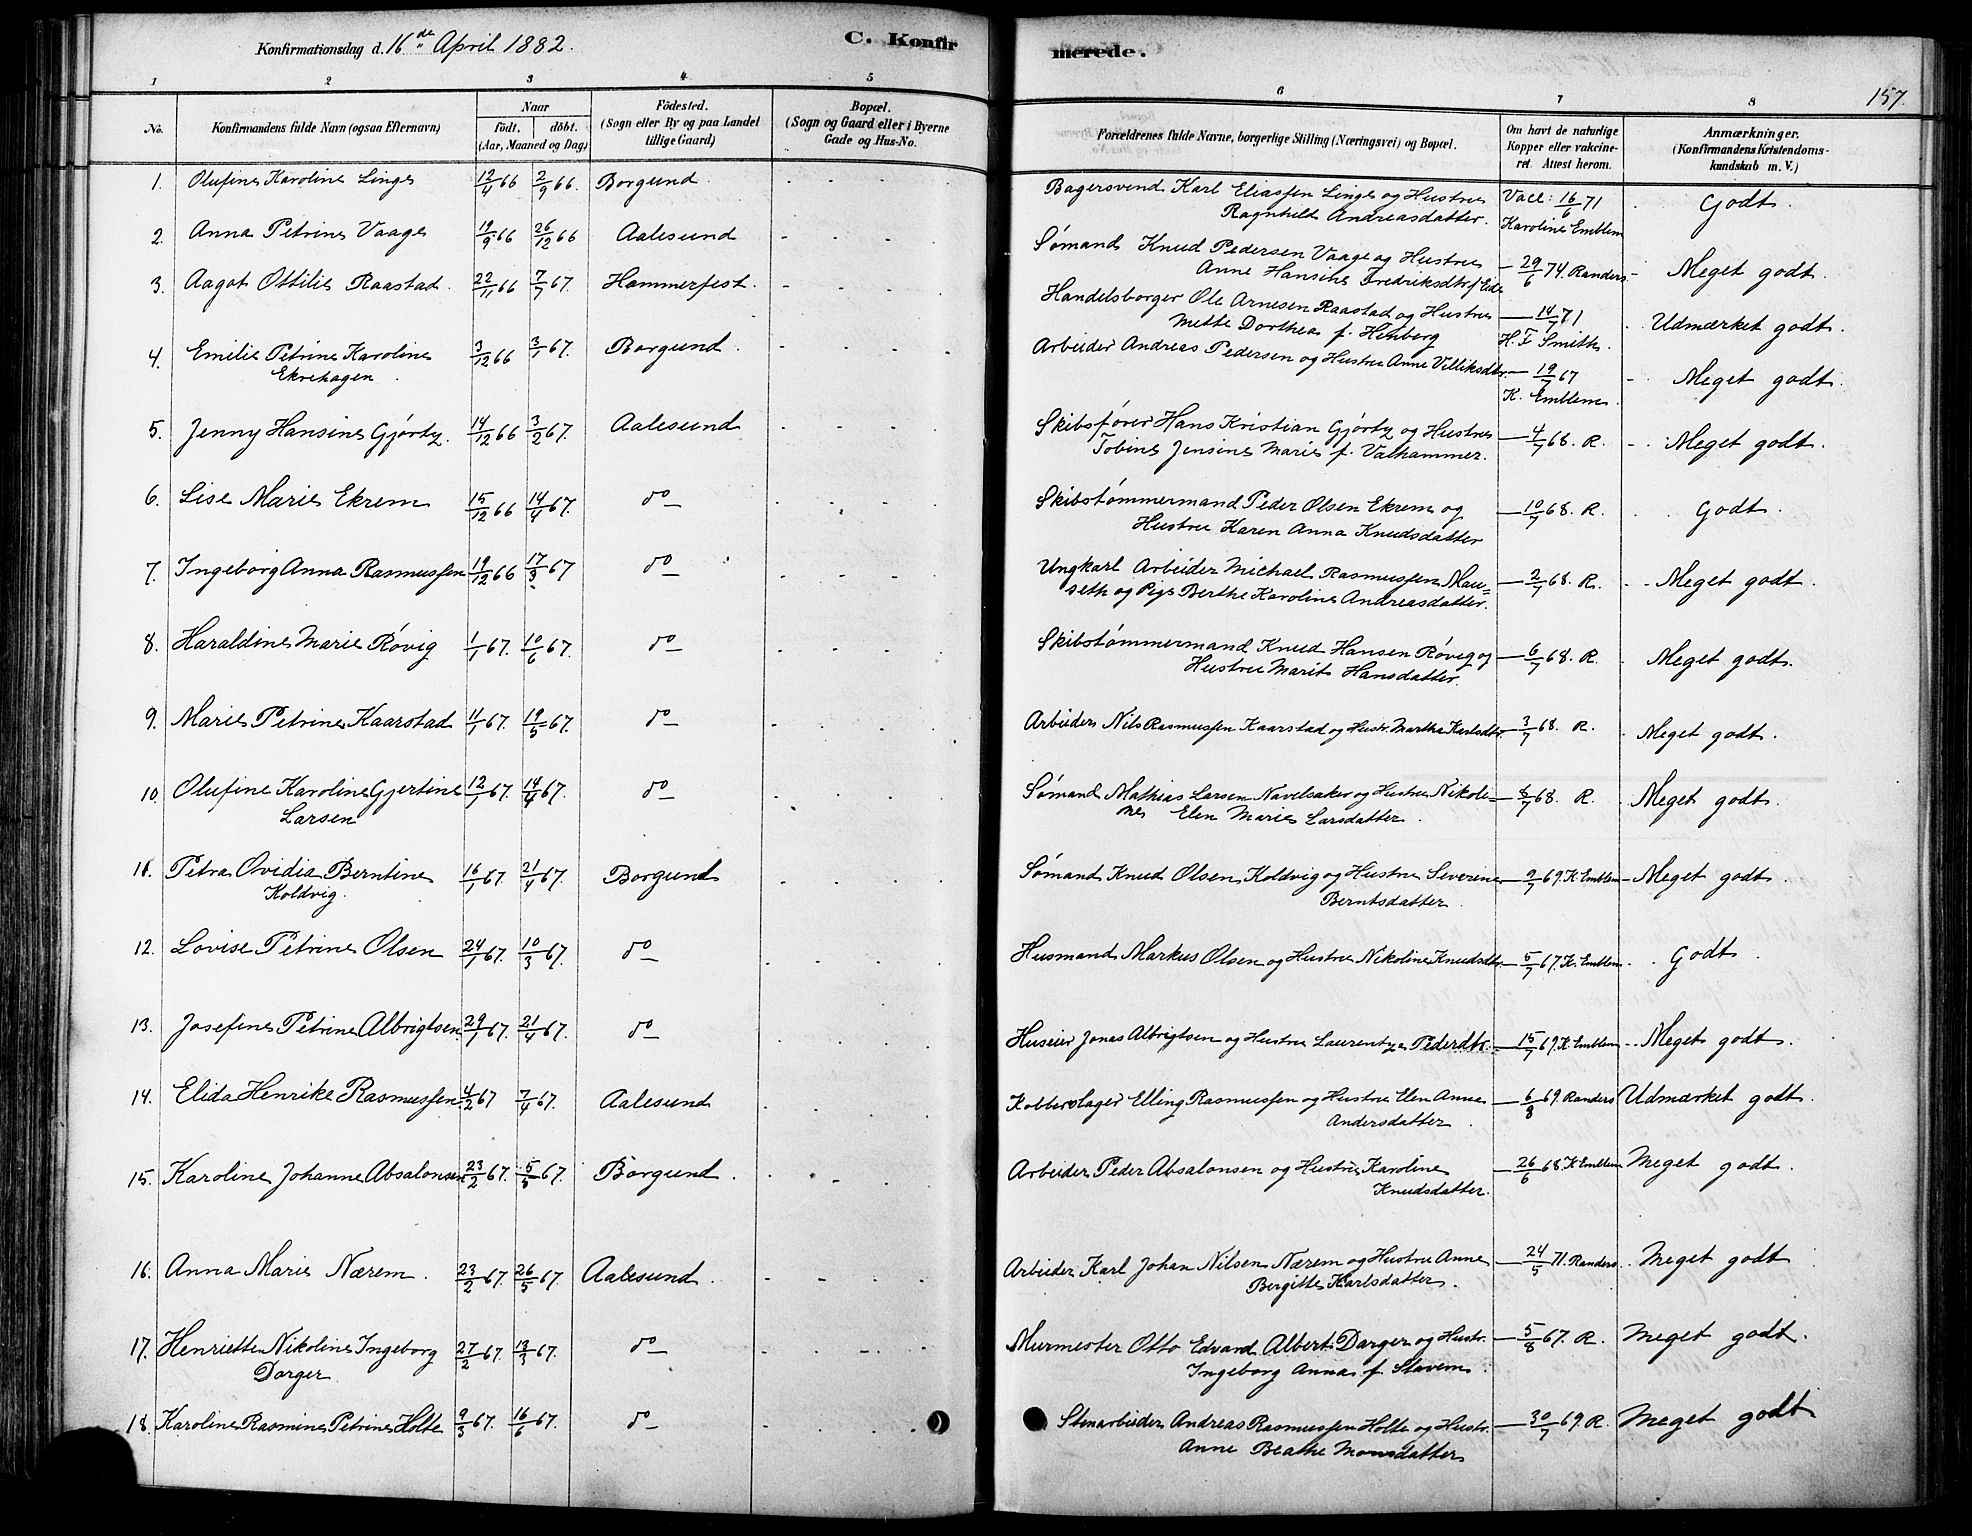 Konfirmationsdag d. 16de April 1882. C. Konfir
merede.
157.
1 2 3 4 5
6 7 8
No. Konfirmandens fulde Navn (ogsaa Efternavn) Naar födt. döbt. (Aar, Maaned og Dag) Födested. (Sogn eller By og paa Landet tillige Gaard) Bopæl. (Sogn og Gaard eller i Byerne Gade og Hus-No.
Forældrenes fulde Navne, borgerlige Stilling (Næringsvei) og Bopæl. Om havt de naturlige Kopper eller vakcineret. Attest herom. Anmærkninger. (Konfirmandens Kristendomskundskab m. V.)
1. Olufine Karoline Linge 12/4 66 2/9 66. Borgund. Bagersvend Karl Eliassen Linge og Hustru Vacc: 16/6 71 Godt.
Ragnhild Andreasdatter. Karoline Emblem
2. Anna Petrine Vaage 19/9 66 26/12 66 Aalesund Sømand Knud Pedersen Vaage og Hustru
Anne Hansine Fredriksdtr f. Eide — 29/6 74. Randers Meget godt.
3. Aagot Ottilie Raastad. 22/11 66 7/7 67. Hammerfest. Handelsborger Ole Arnesen Raastad og Hustru — 14/7 71 Udmærket godt.
Mette Dorthea f. Henberg H. F. Smith.
4. Emilie Petrine Karoline 3/12 66 3/1 67. Borgund. Arbeider Andreas Pedersen og Hustru Anne Villiksdtr. — 19/7 67 Meget godt.
Ekrehagen. K. Emblem.
5. Jenny Hansine Gjørtz. 14/12 66 3/2 67. Aalesund Skibsfører Hans Kristian Gjørtz og Hustru — 4/7 68. R. Meget godt.
Tobine Jensine Marie f. Valhammer.
6. Lise Marie Ekrem 15/12 66 14/4 67. do Skibstømmermand Peder Olsen Ekrem og — 10/7 68. R. Godt.
Hustru Karen Anna Knudsdatter
7. Ingeborg Anna Rasmussen 19/12 66 17/3 67 do Ungkarl Arbeider Michael Rasmussen Mau= — 2/7 68. R. Meget godt.
seth og Pige Berthe Karoline Andreasdatter.
8. Haraldine Marie Røvig 1/1 67. 10/6 67. do Skibstømmermand Knud Hansen Røvig og — 6/7 68. R. Meget godt.
Hustru Marit Hansdatter.
9. Marie Petrine Kaarstad 11/1 67. 19/5 67. do Arbeider Nils Rasmussen Kaarstad og Hustr. Martha Karlsdtr — 3/7 68. R. Meget godt.
10. Olufine Karoline Gjertine 12/1 67. 14/4 67. do Sømand Mathias Larsen Navelsaker og Hustru Nikoli= — 6/7 68. R. Meget godt.
Larsen ne Elen Marie Larsdatter.
11. Petra Ovidia Berntine 16/1 67. 21/4 67. Borgund Sømand Knud Olsen Koldvig og Hustru Severine — 9/7 69. K Emblem Meget godt.
Koldvig. Berntsdatter.
12. Lovise Petrine Olsen 24/1 67. 10/3 67. do Husmand Markus Olsen og Hustru Nikoline Knudsdtr. — 5/7 67. K. Emblem Godt.
13. Josefine Petrine Albrigtsen 29/1 67. 21/4 67. do Huseier Jonas Albrigtsen og Hustru Laurentze Pedersdtr. — 15/7 69. K Emblem Meget godt.
14. Elida Henrike Rasmussen 4/2 67 7/4 67. Aalesund Kobberslager Elling Rasmussen og Hustru Elen Anne — 6/8 69. Randers Udmærket godt.
Andersdatter.
15. Karoline Johanne Absalonsen 23/2 67. 5/5 67. Borgund. Arbeider Peder Absalonsen og Hustru Karoline — 26/6 68 K Emblem Meget godt.
Knudsdatter.
16. Anna Marie Nærem. 23/2 67. 26/5 67. Aalesund. Arbeider Karl Johan Nilsen Nærem og Hustru Anne — 24/5 71. Randers. Meget godt
Bergitte Karlsdatter.
17. Henriette Nikoline Ingeborg 27/2 67. 13/3 67. do Murmester Otto Edvard Albert Darger og Hustr. — 5/8 67. R. Meget godt.
Darger Ingeborg Anna f. Stavem.
18. Karoline Rasmine Petrine Holte 9/3 67. 16/6 67. do Stenarbeider Andreas Rasmussen Holte og Hustr. — 30/7 69 R. Meget godt
Anne Beathe Monsdatter